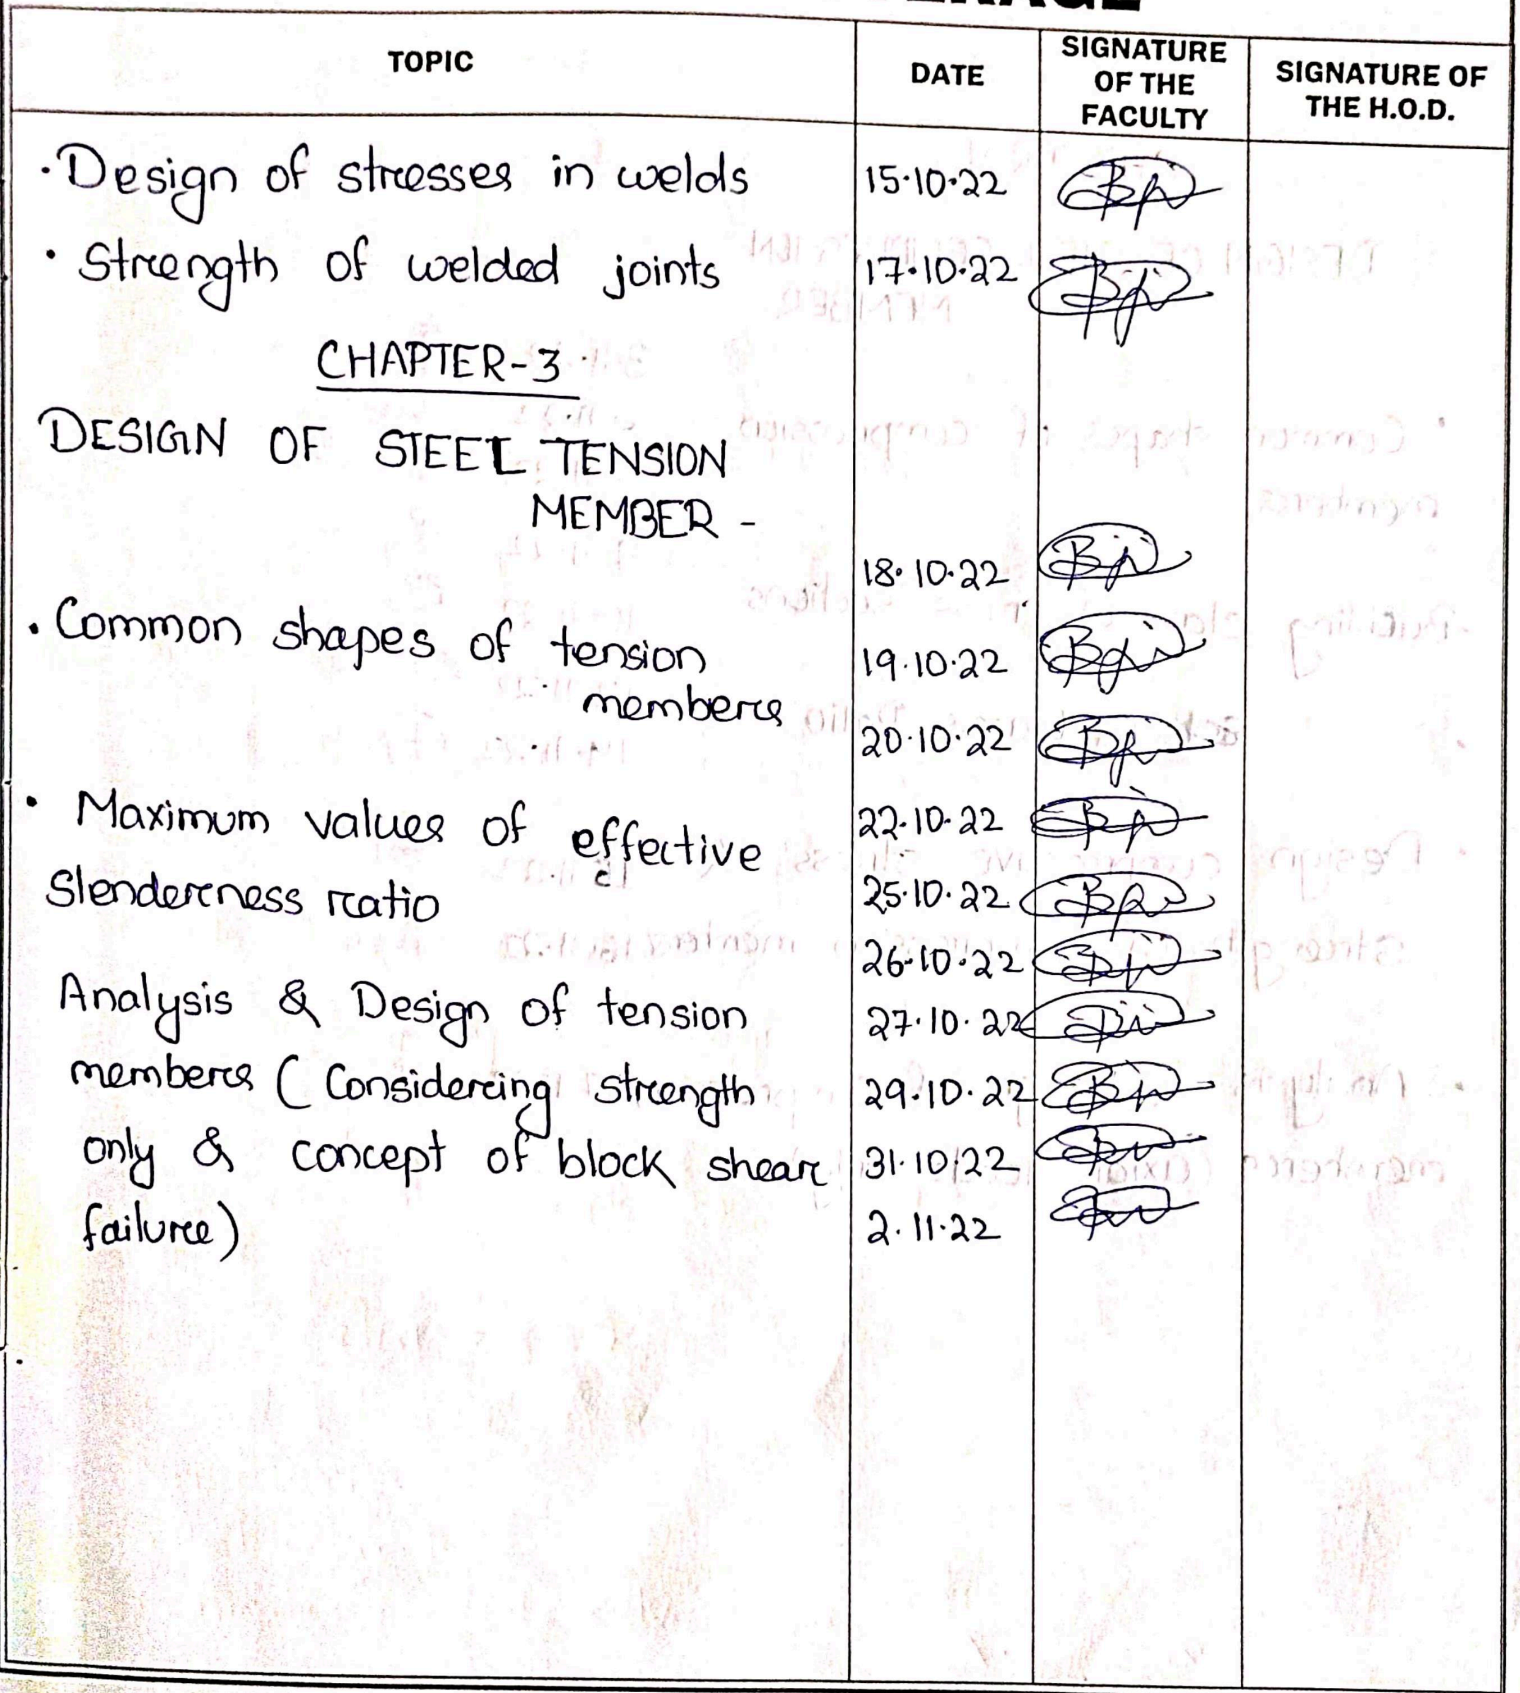 TOPIC
DATE
SIGNATURE
OF THE
FACULTY
SIGNATURE OF
THE H.O.D.
· Design of stresses in welds 15·10·22
· Strength of welded joints 17·10·22
CHAPTER-3
DESIGN OF STEEL TENSION
MEMBER -
18·10·22
· Common shapes of tension 19·10·22
members
20·10·22
· Maximum values of effective 22·10·22
Slenderness ratio 25·10·22
26·10·22
Analysis & Design of tension 27·10·22
members (Considering strength 29·10·22
only & concept of block shear 31·10·22
failure) 2·11·22